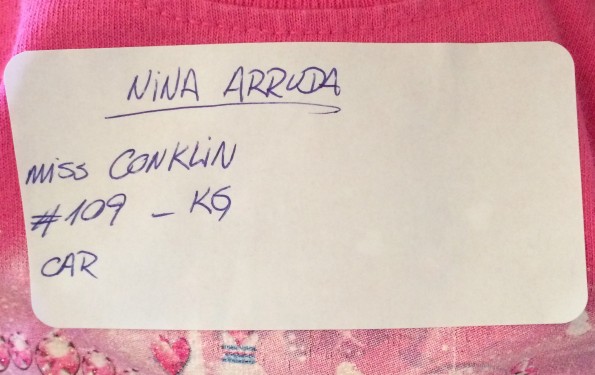 NINA ARRUDA
MISS CONKLIN
#109 - KG
CAR